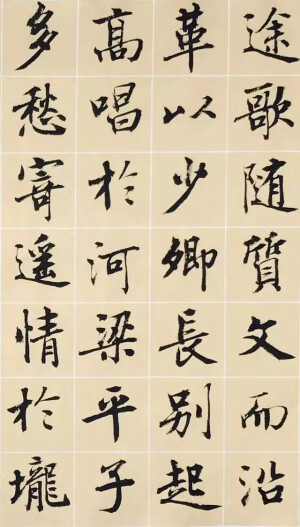 途歌随質文而沿
革以少卿長別起
高唱於河梁平子
多愁寄遥情於壠